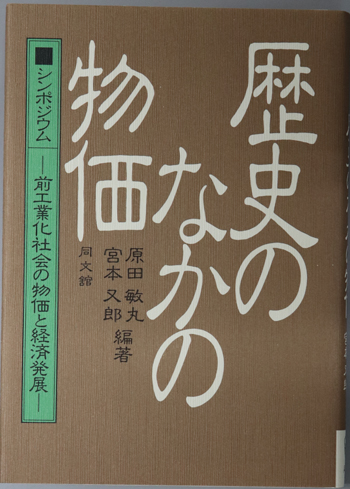 歴史の
なかの
物価
原田 敏丸
宮本 又郎 編著
同文舘
■シンポジウム
―前工業化社会の物価と経済発展―